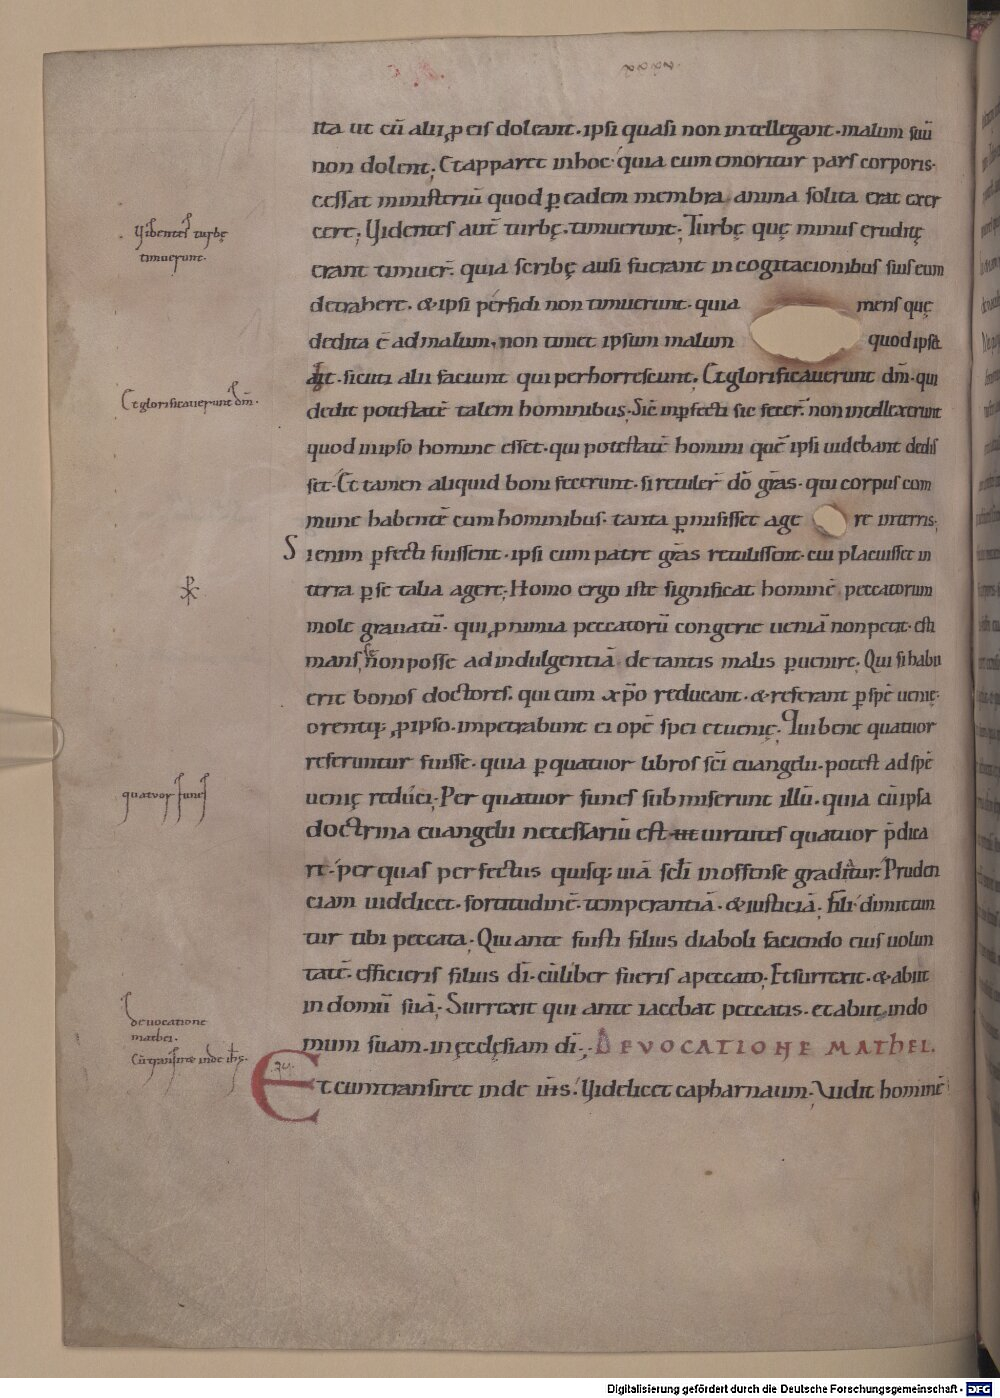 ita ut cū alii ꝓ eis doleant· ipsi quasi non intellegant· malum suū
non dolent; Et apparet in hoc· quia cum emoritur pars corporis·
cessat ministeriū quod ꝑ eadem membra anima solita erat exer
cere; Videntes aut̄ turbę· timuerunt; Turbę quę minus eruditę
Videntes turbę
timuerunt·
erant timuer̄· quia scribę ausi fuerant in cogitacionibus suis eum
detrahere· & ipsi perfidi non timuerunt· quia mens quę
dedita ē ad malum, non timet ipsum malum quod ipsa
ait· sicuti alii faciunt qui perhorrescunt; Et glorificauerunt dm̄· qui
Et glorificauerunt dm̄·
dedit potestatē talem hominibus; Sic̄ inꝑfecti sic fecer̄· non intellexerunt
quod in ipso homine esset· qui potestatē homini quē ipsi uidebant dedis
set· Et tamen aliquid boni fecerunt· si retuler̄ dō gr̄as· qui corpus com
mune habentē cum hominibus· tanta ꝑmisisset age re in terris;
Si enim ꝑfecti fuissent· ipsi cum patre gr̄as retulissent· cui placuisset in
terra ꝑ se talia agere; Homo ergo iste significat hominē peccatorum
mole grauatū· qui ꝓ nimia peccatorū congerie ueniā non petit· esti
mans se non posse ad indulgentiā de tantis malis ꝑuenire; Qui si habu
erit bonos doctores· qui eum xp̄o reducant· & referant ꝑ spē uenię·
orentq; ꝓ ipso· impetrabunt ei opē spei et uenię; Qui bene quatuor
referuntur fuisse· quia ꝑ quatuor libros sc̄i euangelii· potest ad spē
uenię reduci; Per quatuor funes submiserunt illū· quia cū ipsa
quatuor funes
doctrina euangelii necessariū est uirtutes quatuor p̄dica
re· per quas perfectus quisq; uiā scl̄i inoffense graditur: Pruden
ciam uidelicet· fortitudinē· temperantiā· & iusticiā; Fili dimittun
tur tibi peccata; Qui ante fuisti filius diaboli faciendo eius uolun
tatē· efficieris filius dī· cū liber fueris a peccato; Et surrexit· & abiit
in domū suā; Surrexit qui ante iacebat peccatis· et abiit in do
de uocatione
mathei·
mum suam· in ęcclęsiam dī; DE VOCATIONE MATHEI.
Cū transiret inde ih̄s·
Et cum transiret inde ih̄s· Videlicet capharnaum; Vidit hominē
Digitalisierung gefördert durch die Deutsche Forschungsgemeinschaft - DFG